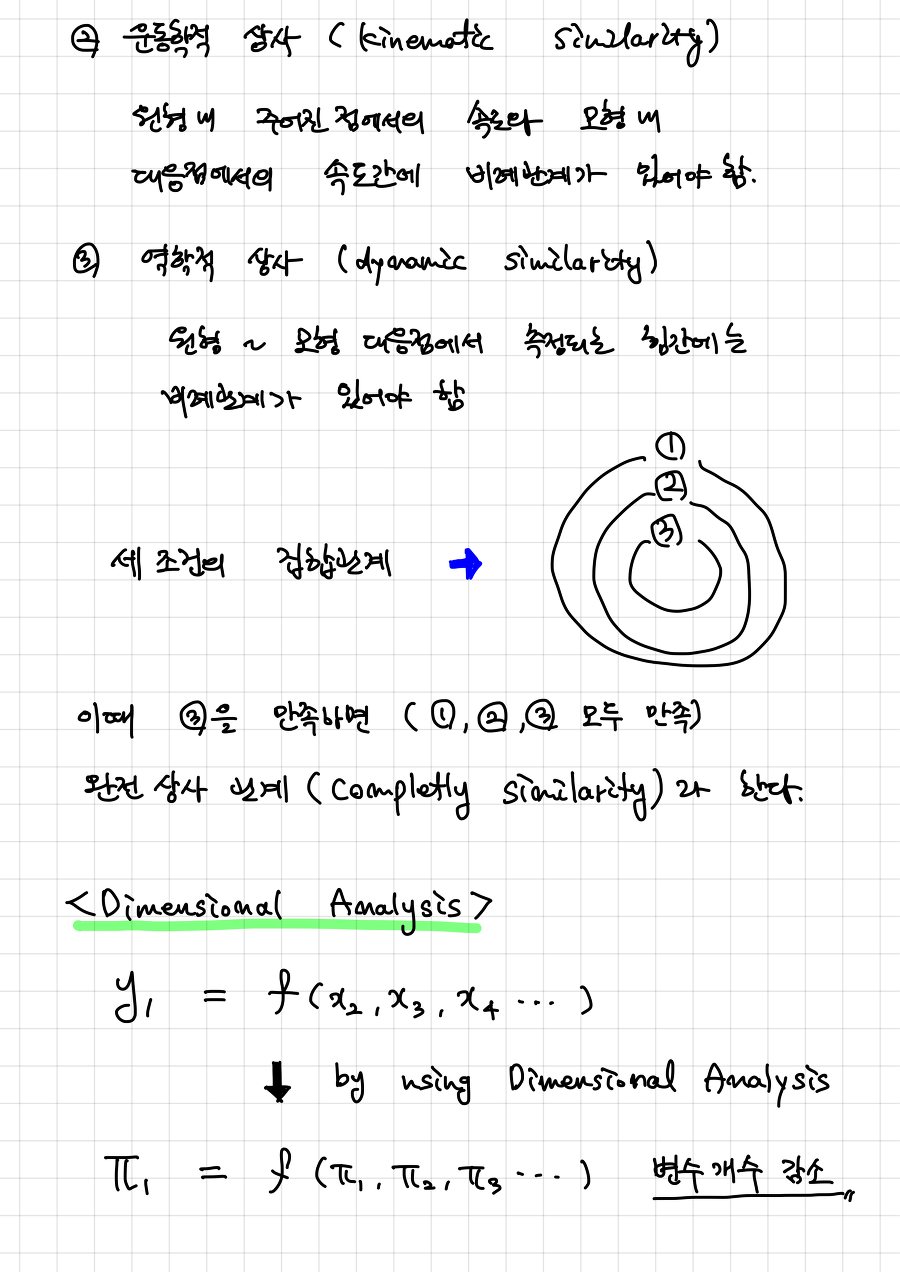 ② 운동학적 상사 (kinematic similarity)
원형 내 주어진 점에서의 속도와 모형 내
대응점에서의 속도간에 비례관계가 있어야 함.
③ 역학적 상사 (dynamic similarity)
원형 ~ 모형 대응점에서 측정되는 힘간에는
비례관계가 있어야 함
①
②
③
세 조건의 집합관계 →
이때 ③을 만족하면 (①, ②, ③ 모두 만족)
완전 상사 관계 (Completly similarity)라 한다.
<Dimensional Analysis>
y₁ = f(x₂, x₃, x₄ ⋯)
↓ by using Dimensional Analysis
π₁ = f(π₁, π₂, π₃ ⋯) 변수 개수 감소〃